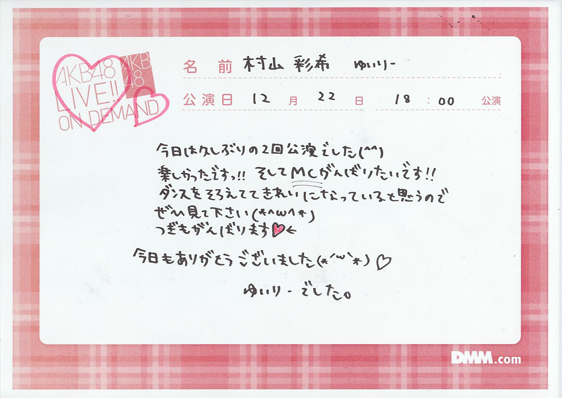 AKB48
LIVE!!
ON DEMAND
AKB
48
名前 村山 彩希 ゆいりー
公演日 12月 22日 18:00 公演
今日は久しぶりの2回公演でした(^^)
楽しかったですっ!! そしてMCがんばりたいです!!
ダンスをそろえててきれいになっていると思うので
ぜひ見て下さい(*^ω^*)
つぎもがんばります♥←
今日もありがとうございました(*´ω`*)♡
ゆいりーでした。
DMM.com